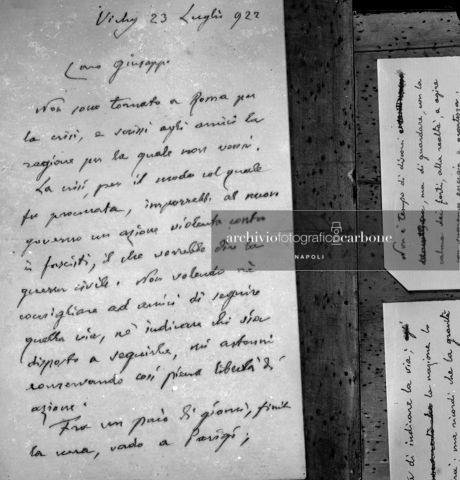 Vichy 23 Luglio 922
Caro Giuseppe
Non sono tornato a Roma per
la crisi, e scrissi agli amici la
ragione per la quale non venni.
La crisi, per il modo col quale
fu provocata, imporrebbe al nuovo
governo un azione violenta contro
i fascisti, il che vorrebbe dire la
guerra civile. Non volendo nè
consigliare ad amici di seguire
quella via, nè indicare chi sia
disposto a seguirla, mi astenni
conservando così piena libertà di
azione.
Fra un paio di giorni, finita
la cura, vado a Parigi;
archiviofotograficocarbone
NAPOLI
Non è tempo di discorsi
ma di guardare, con la
calma dei forti, alla realtà, e agire
di indicare la via;
la nazione lo
ma ricordi che la gravità